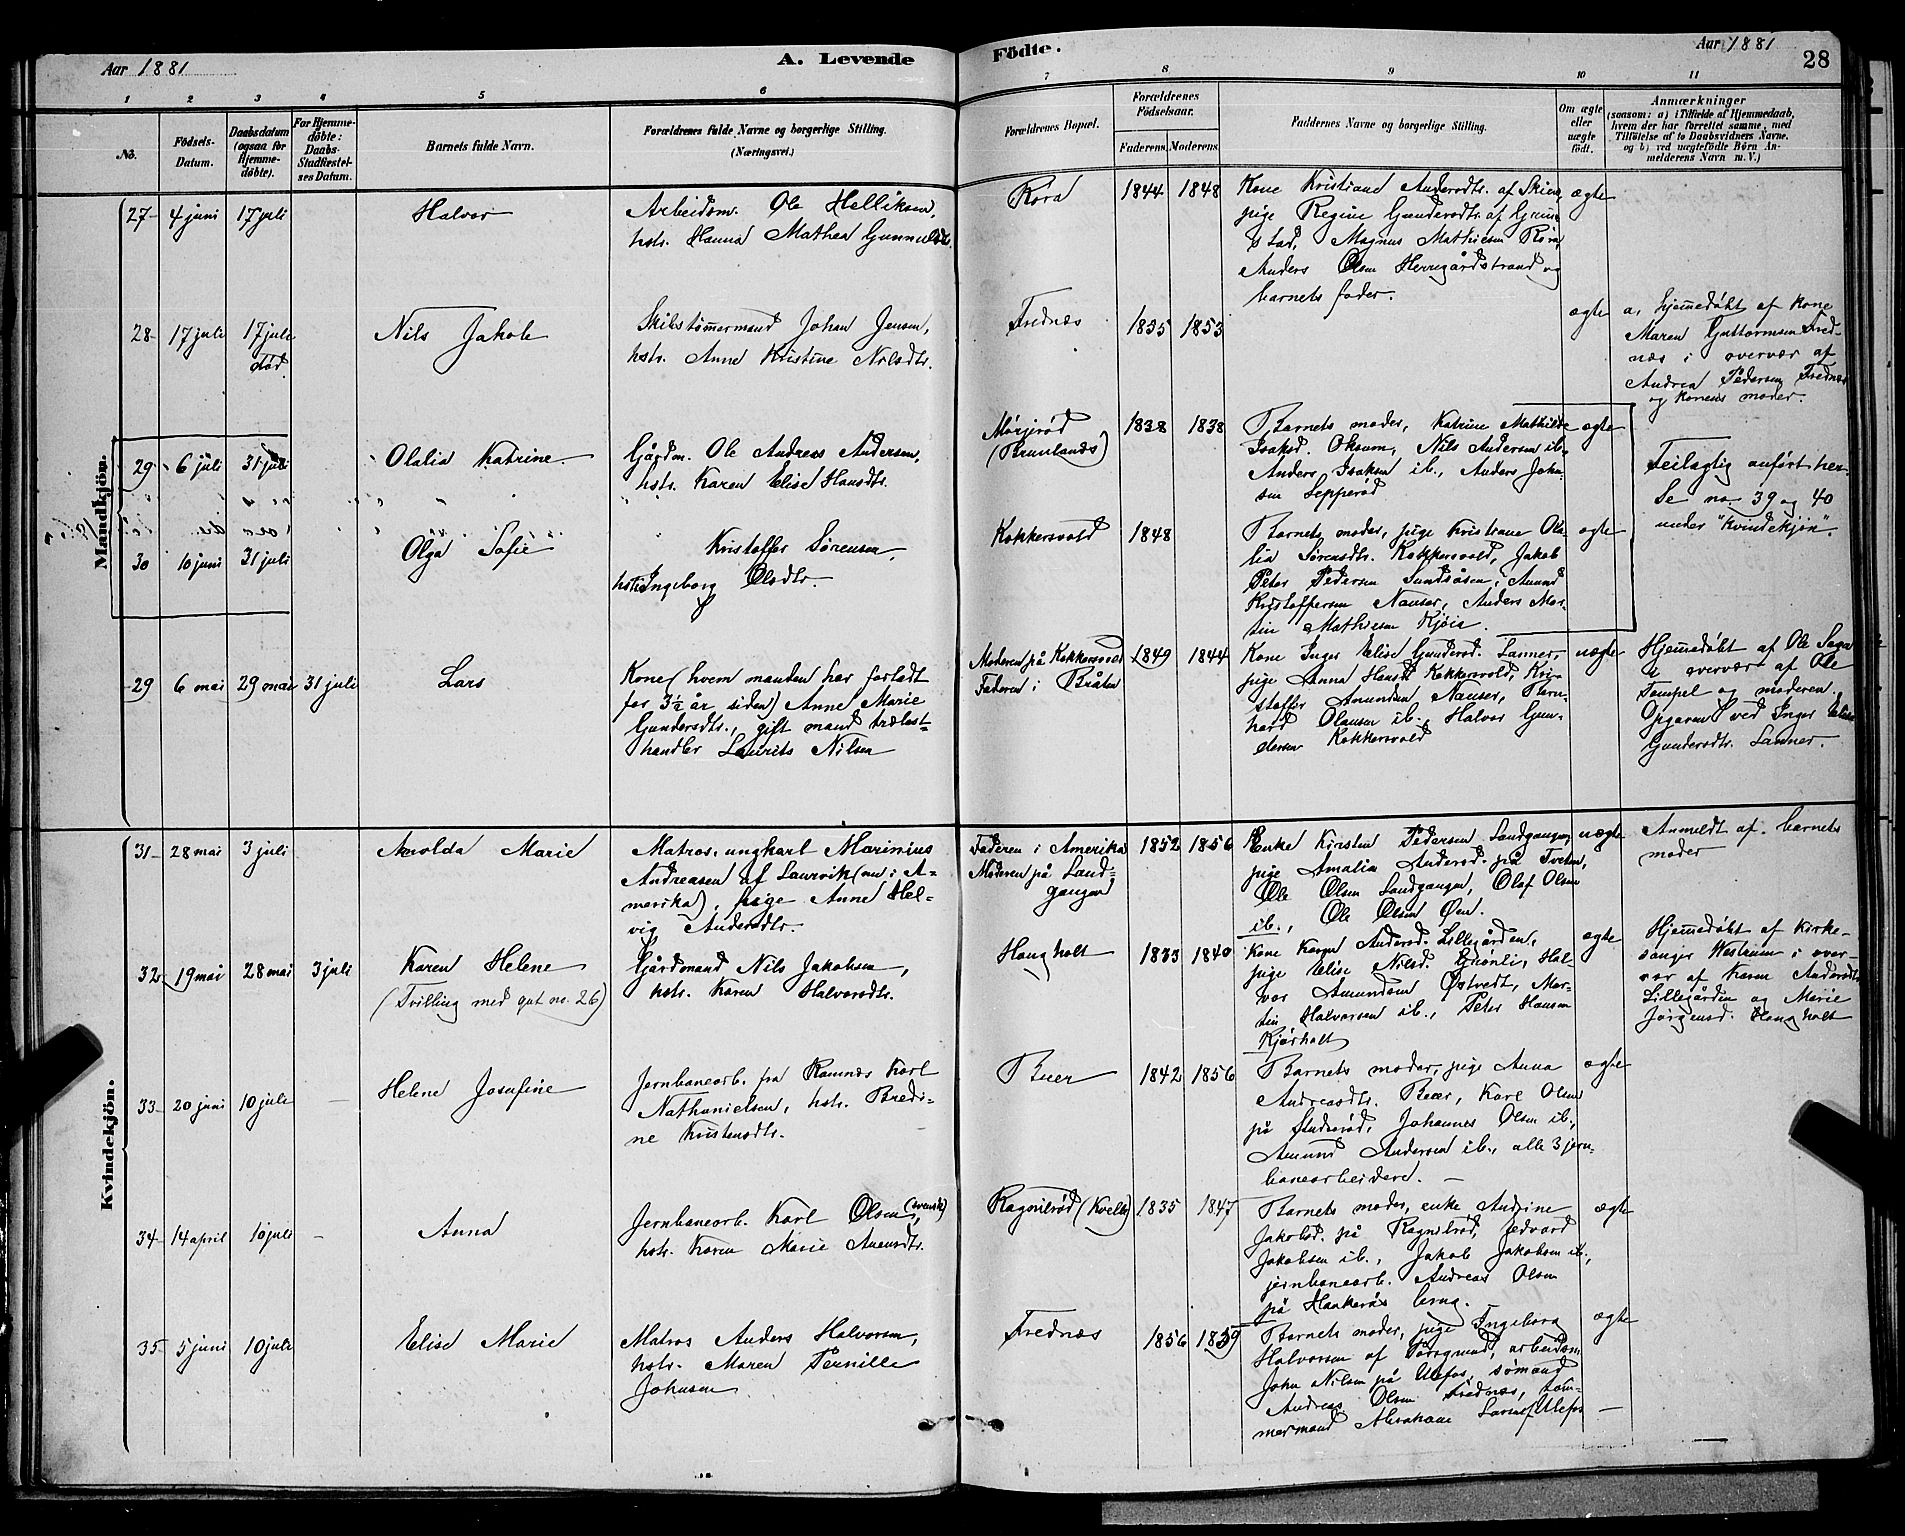 Aar 1881
A. Levende
Födte.
Aar 1881
28
1 2 3 4 5 6 7 8 9 10 11
No.
Födsels-
Datum.
Daabsdatum
(ogsaa for
Hjemme-
döbte).
For Hjemme-
döbte:
Daabs-
Stadfæstel-
ses Datum.
Barnets fulde Navn.
Forældrenes fulde Navne og borgerlige Stilling.
(Næringsvei.)
Forældrenes Bopæl.
Forældrenes
Födselsaar.
Faderens. Moderens.
Faddernes Navne og borgerlige Stilling.
Om ægte
eller
uægte
födt.
Anmærkninger
(saasom: a) i Tilfælde af Hjemmedaab,
hvem der har forrettet samme, med
Tilföielse af to Daabsvidners Navne,
og b) ved uægtefödte Börn An-
melderens Navn m. V.)
Mandkjön.
27 4 juni 17 juli
Halvor
Arbeidsm. Ole Helliksen,
hstr. Hanna Mathea Gunnulsdt.
Röra
1844 1848
Kone Kristiane Andersdtr. af Skien,
pige Regine Gundersdtr. af Grim-
stad, Magnus Mathisen Röra,
Anders Olsen Herregårdstrand og
barnets fader.
ægte
28 17 juli 17 juli
död.
Nils Jakob
Skibstömmermand Johan Jensen,
hstr. Anne Kristine Nilsdtr.
Frednæs
1835 1853
ægte
a, hjemmedöbt af kone
Maren Guttormsen Fred-
næs i overvær af
Andrea Pedersen Frednæs
og konens moder.
29 6 juli 31 juli
Olalia Katrine
Gårdm. Ole Andreas Andersen,
hstr. Karen Elise Hansdtr.
Mörjeröd
(Brunlanæs)
1838 1838
Barnets moder, Katrine Mathilde
Isaksd. Oksum, Nils Andersen ib.,
Anders Isaksen ib., Anders John-
sen Lepperöd
ægte
Feilagtig anfört her.
Se no 39 og 40
under "Kvindekjön".
30 10 juni 31 juli
Olga Sofie
Kristoffer Sörensen,
hstr. Ingeborg Olsdtr.
Kokkersvold
1848
Barnets moder, pige Kristiane Ola-
lia Sörensdtr. Kokkersvold, Jakob
Peter Pedersen Sundsåsen, Amund
Kristoffersen Nauser, Anders Mar-
tin Mathisen Kjöis.
ægte
29 6 mai 29 mai 31 juli
Lars
Kone (hvem manden har forladt
for 3½ år siden) Anne Marie
Gundersdtr., gift mand trælast-
handler Laurits Nilsen
Moderen på Kokkersvold
Faderen i Bråten
1849 1844
Kone Inger Elise Gundersd. Sanner,
pige Anna Hansd. Kokkersvold, Kri-
stoffer Amundsen Nauser, Bern-
hard Olausen ib., Halvor Gun-
dersen Kokkersvold
uægte
Hjemmedöbt af Ole Saga
i overvær af Ole
Tempel og moderen.
Opgaven ved Inger Elise
Gundersdtr. Sanner.
Kvindekjön.
31 28 mai 3 juli
Arolda Marie
Matros, ungkarl Marinius
Andreasen af Laurvik (nu i A-
merika), pige Anne Hel-
vig Andersdtr.
Faderen i Amerika
Moderen på Land-
gangen
1852 1856
Enke Kirsten Pedersen Landgangen,
pige Amalia Andersd. på Tveten,
Ole Olsen Landgangen, Olaf Olsen
ib., Ole Olsen Öen.
uægte
Anmeldt af barnets
moder
32 19 mai 28 mai 3 juli
Karen Helene
(Tvilling med gut no. 26)
Gårdmand Nils Jakobsen,
hstr. Karen Halvorsdtr.
Haugholt
1833 1840
Kone Karen Andersd. Lillegården,
pige Elise Nilsd. Grönli, Hal-
vor Amundsen Östvedt, Mar-
tin Halvorsen ib., Peter Hansen
Kjörholt
ægte
Hjemmedöbt af kirke-
sanger Westrum i over-
vær af Karen Andersdtr.
Lillegården og Marie
Jörgensd. Haugholt
33 20 juni 10 juli
Helene Josefine
Jernbanearb. fra Ramnæs Karl
Nathanielsen, hstr. Bredi-
ne Kristensdtr.
Buer
1842 1856
Barnets moder, pige Anna
Andreasdtr. Buer, Karl Olsen
på Enderöd, Johannes Olsen ib.,
Amund Andersen ib., alle 3 jern-
banearbeidere.
ægte
34 14 april 10 juli
Anna
Jernbanearb. Karl Olsen (svensk),
hstr. Karen Marie Anensdtr.
Ragnilröd (Kvelle)
1835 1847
Barnets moder, enke Andrine
Jakobsd. på Ragnilröd, Edvard
Jakobsen ib., Jakob Jakobsen ib.,
jernbanearb. Andreas Olsen
på Haakeröd brug.
ægte
35 5 juni 10 juli
Elise Marie
Matros Anders Halvorsen,
hstr. Maren Pernille
Johnsen
Frednæs
1856 1859
Barnets moder, pige Ingeborg
Halvorsen af Porsgrund, arbeidsm
John Nilsen på Ulefos, sömand
Andreas Olsen Frednæs, töm-
mermand Abraham Larsen Ulefos
ægte